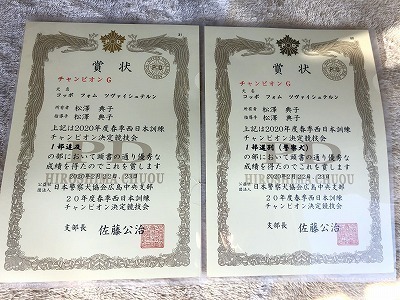 賞状
チャンピオンG
犬名
コッポ フォム ツヴァイシュテルン
所有者 松澤 典子
指導手 松澤 典子
上記は2020年度春季西日本訓練
チャンピオン決定競技会
1部追及
の部において頭書の通り優秀な
成績を得たのでこれを賞します
2020年2月22、23日
公益社団法人 日本警察犬協会広島中央支部
20年度春季西日本訓練
チャンピオン決定競技会
支部長 佐藤公治
賞状
チャンピオンG
犬名
コッポ フォム ツヴァイシュテルン
所有者 松澤 典子
指導手 松澤 典子
上記は2020年度春季西日本訓練
チャンピオン決定競技会
1部遠別(警察犬)
の部において頭書の通り優秀な
成績を得たのでこれを賞します
2020年2月22、23日
公益社団法人 日本警察犬協会広島中央支部
20年度春季西日本訓練
チャンピオン決定競技会
支部長 佐藤公治